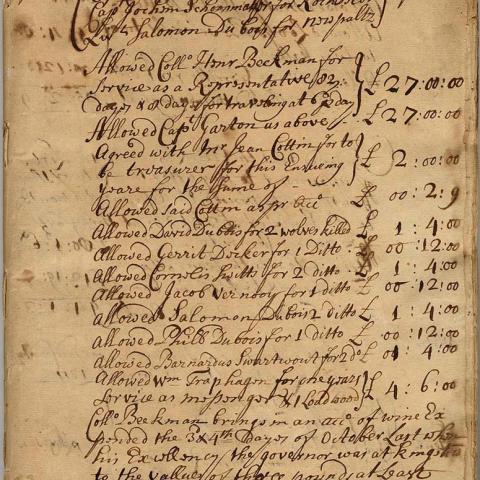 Capt Jochem Schonmaker for Rochester
Lieut Salomon Du bois for New paltz
Allowed Collo Henr Beekman for
Service as a Representative 82
dayes & 8 dayes for traveling at 6 p day } £ 27:00:00
Allowed Capt Garton as above £ 27:00:00
Agreed with Mr Jean Cottin for to
be treasurer for this Ensueing
yeare for the sume of } £ 2:00:00
Allowed said Cottin as pr acct £ 00:2:9
Allowed David Dubois for 2 wolves killed £ 1:4:00
Allowed Gerrit Decker for 1 Ditto £ 00:12:00
Allowed Cornelis Switts for 2 ditto £ 1:4:00
Allowed Jacob Vernooy for 1 ditto £ 00:12:00
Allowed Salomon Dubois 2 Ditto £ 1:4:00
Allowed Phill Dubois for 1 ditto £ 00:12:00
Allowed Barnardus Swartwout for 2 do £ 01:4:00
Allowed Wm Traphagen for one years
Service as messenger & 1 Load wood } £ 4:6:00
Collo Beekman brings in an acct of wine Ex
pended the 3 & 4th dayes of October Last when
his Excellency the governor was at kingst
to the vallue of three pounds at Least